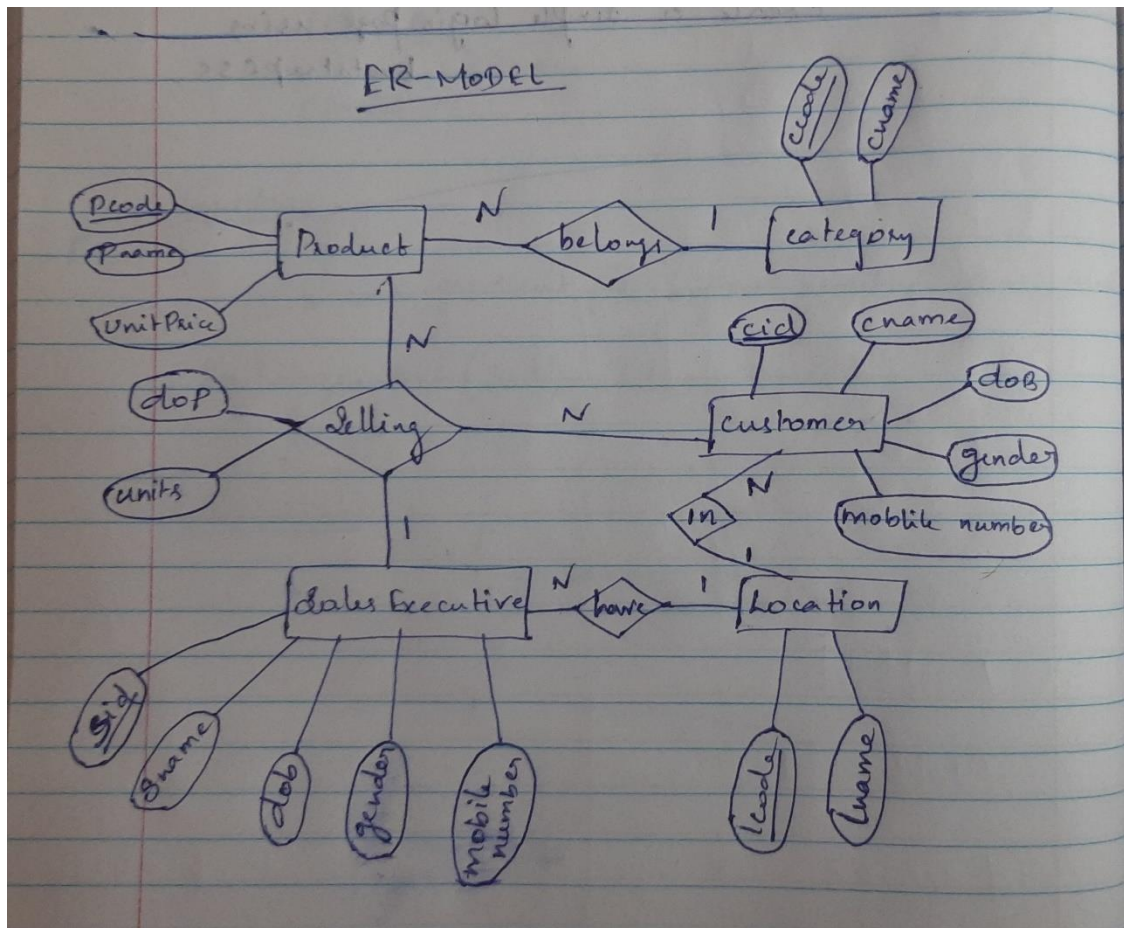 ER-MODEL
ccode
cname
Pcode
Pname
UnitPrice
Product
N
belongs
1
category
N
cid
cname
doB
gender
moblile number
customer
N
doP
units
Selling
N
in
1
1
Sales Executive
N
have
1
Location
Sid
Sname
dob
gender
mobile
number
lcode
lname